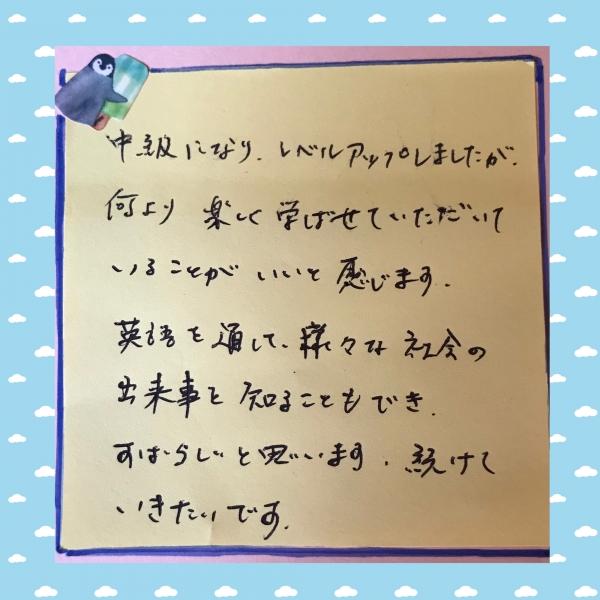 中級になり、レベルアップしましたが、
何より 楽しく学ばせていただいて
いることが いいと感じます。
英語を通して、様々な社会の
出来事を知ることもでき、
すばらしいと思います。続けて
いきたいです。